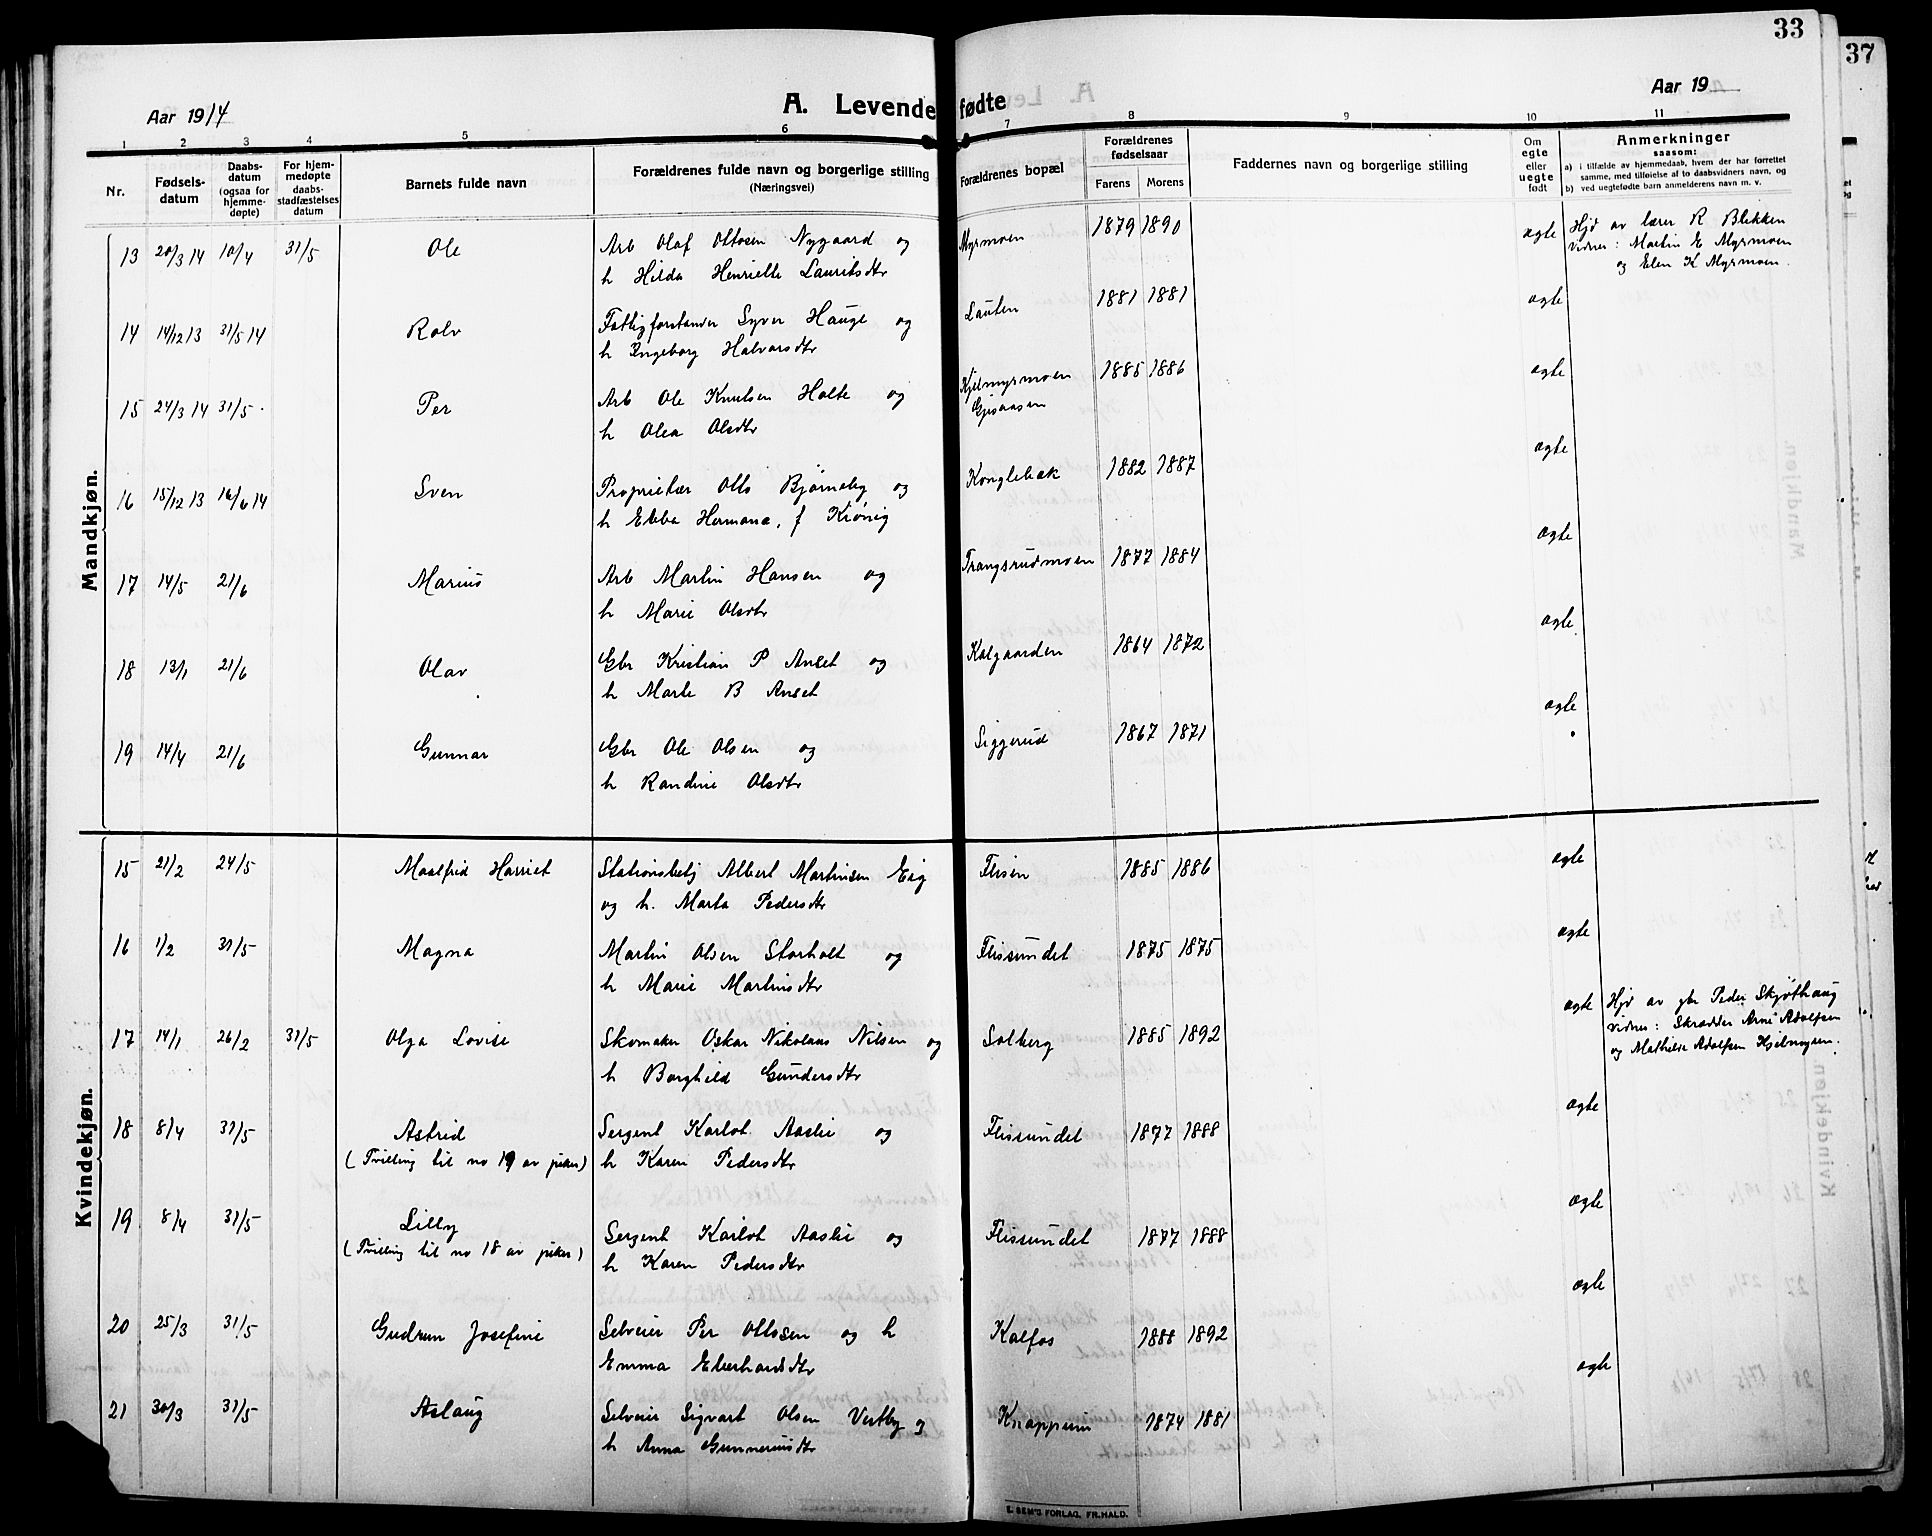 33
37
Aar 1914
A. Levendefødte
Aar 19
1 2 3 4 5 6 7 8 9 10 11
Nr.
Fødsels-
datum
Daabs-
datum
(ogsaa for
hjemme-
døpte)
For hjem-
medøpte
daabs-
stadfæstelses
datum
Barnets fulde navn
Forældrenes fulde navn og borgerlige stilling
(Næringsvei)
Forældrenes bopæl
Forældrenes
fødselsaar
Farens Morens
Faddernes navn og borgerlige stilling
Om
egte
eller
uegte
født
Anmerkninger
saasom:
a) i tilfælde av hjemmedaab, hvem der har forrettet
samme, med tilføielse af to daabsvidners navn, og
b) ved uegtefødte barn anmelderens navn m. v.
Mandkjøn.
13 20/3 14 10/4 31/5 Ole Arb Olaf Ottosen Nygaard og Myrmoen 1879 1890 ægte Hjd av lærer R Blekken
h Hilda Henriette Lauritsdtr vidner: Martin E Myrmoen
og Elen K Myrmoen.
14 14/12 13 31/5 14 Rolv Fattigforstander Syver Hauge og Lauten 1881 1881 ægte
h Ingeborg Halvorsdtr
15 24/3 14 31/5 Per Arb Ole Knutsen Holte og Kjelmyrmoen 1885 1886 ægte
h Olea Olsdtr Gjesaasen
16 15/12 13 16/6 14 Sven Proprietær Otto Bjørneby og Konglebæk 1882 1887 ægte
h Ebba Hermana, f Krönig
17 14/5 21/6 Marius Arb Martin Hansen og Trangsrudmoen 1877 1884 ægte
h Marie Olsdtr
18 13/1 21/6 Olav Gbr Kristian P Anset og Kalgaarden 1864 1872 ægte
h Marte B Anset
19 14/4 21/6 Gunnar Gbr Ole Olsen og Siggerud 1867 1871 ægte
h Randine Olsdtr
Kvindekjøn.
15 21/2 24/5 Maalfrid Harriet Stationsbetj Albert Martinsen Eig Flisen 1885 1886 ægte
og h. Marta Pedersdtr
16 1/2 31/5 Magna Martin Olsen Storholt og Flissundet 1875 1875 ægte
h Marie Martinsdtr
17 14/1 26/2 31/5 Olga Lovise Skomaker Oskar Nikolaus Nilsen og Solberg 1885 1892 ægte Hjd av gbr Peder Skjøthaug
h Borghild Gundersdtr vidner: Skrædder Arne Adolfsen
og Mathilde Adolfsen Hjelmyren.
18 8/4 31/5 Astrid Sergent Karlot Aaslie og Flissundet 1877 1888 ægte
(Tvilling til no 19 av piker) h Karen Pedersdtr
19 8/4 31/5 Lilly Sergent Karlot Aaslie og Flissundet 1877 1888 ægte
(Tvilling til no 18 av piker) h Karen Pedersdtr
20 25/3 31/5 Gudrun Josefine Selveier Per Ottosen og h Kalfos 1888 1892 ægte
Emma Eberhardsdtr
21 30/3 31/5 Aslaug Selveier Sigvart Olsen Vestby og Knapperud 1874 1881 ægte
h Anna Gunneriusdtr
E. SEM'S FORLAG, FR.HALD.